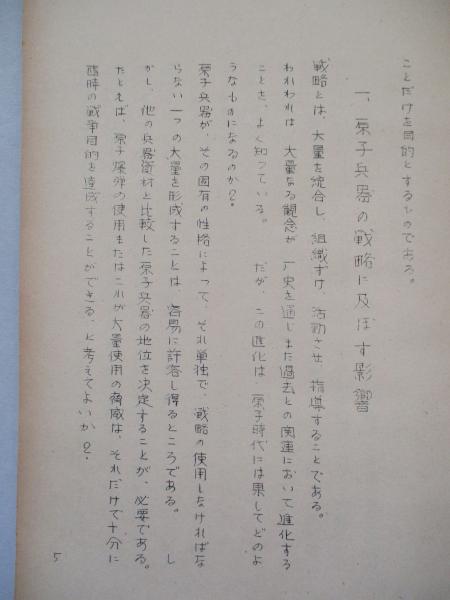 ことだけを目的とするものである。
一、原子兵器の戦略に及ぼす影響
戦略とは、大量を統合し、組織ずけ、活動させ、指導することである。
われわれは、大量なる観念が、厂史を通じまた過去との関連において進化する
ことを、よく知っている。　だが、この進化は、原子時代には果してどのよ
うなものになるのか？
原子兵器が、その固有の性格によって、それ単独で、戦略の使用しなければな
らない一つの大量を形成することは、容易に許容し得るところである。　し
かし、他の兵器資材と比較した原子兵器の地位を決定することが、必要である。
たとえば、原子爆弾の使用またはこれが大量使用の脅威は、それだけで十分に
臨時の戦争目的を達成することができる、と考えてよいか？
5